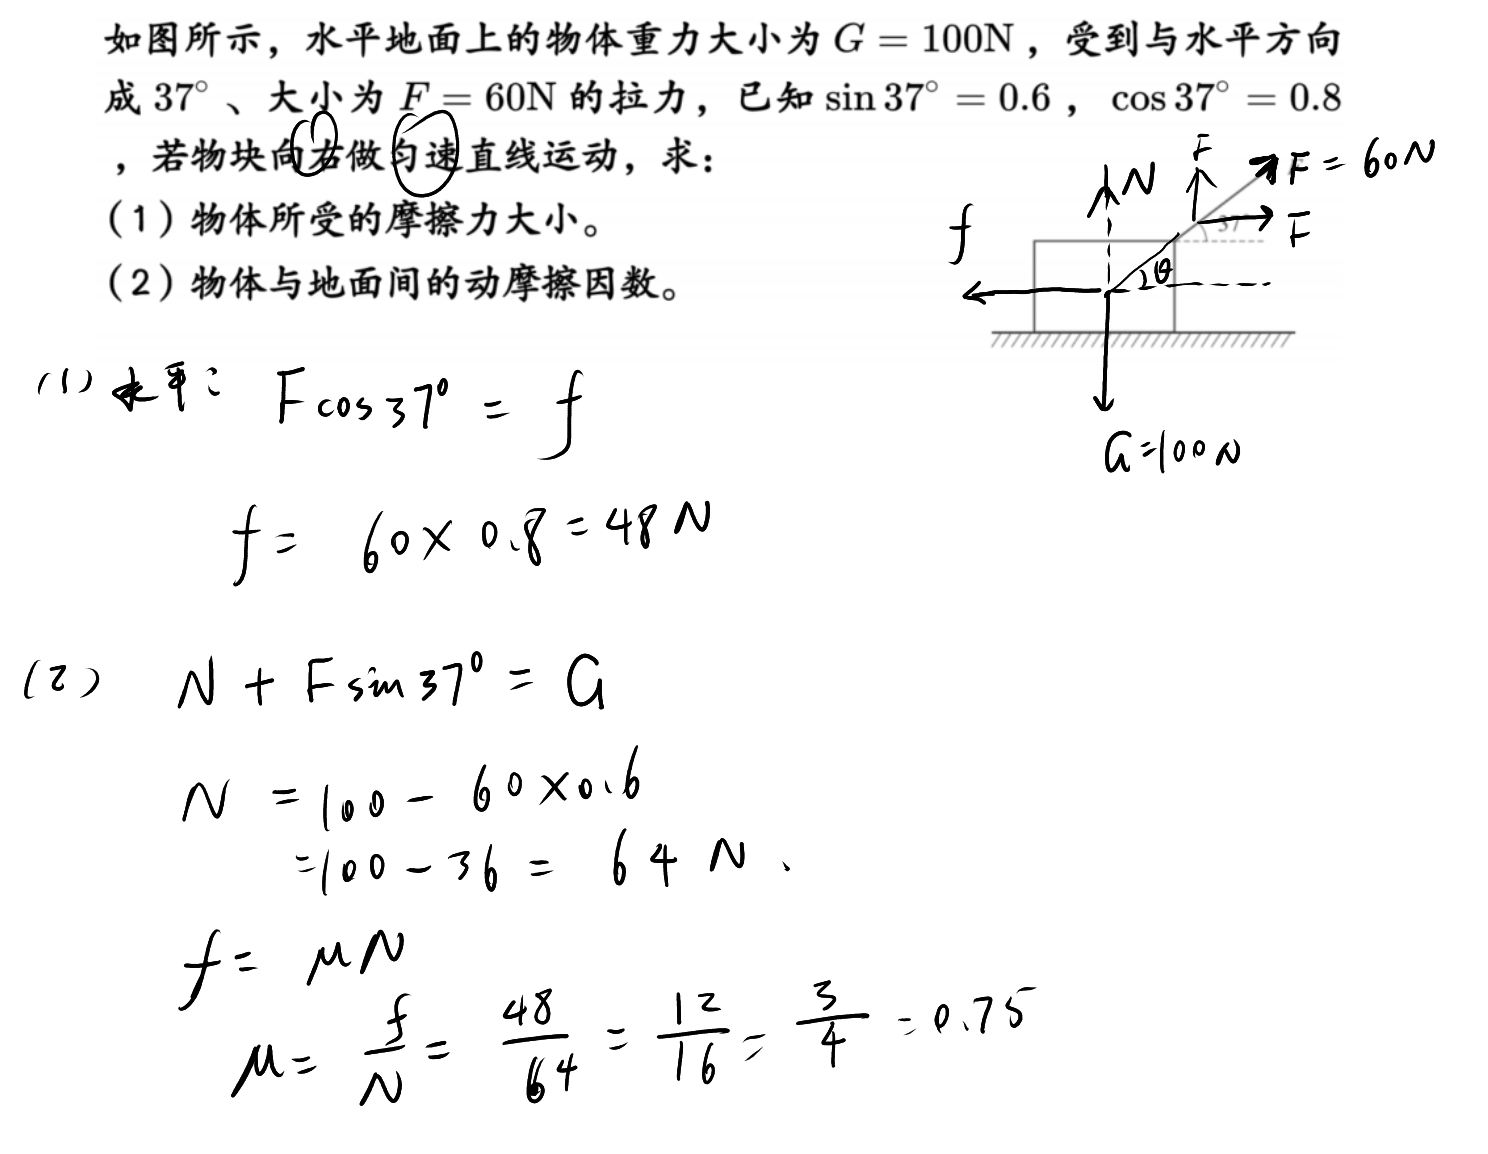 如图所示，水平地面上的物体重力大小为 G = 100N，受到与水平方向
成 37°、大小为 F = 60N 的拉力，已知 sin 37° = 0.6，cos 37° = 0.8
，若物块向右做匀速直线运动，求：
(1) 物体所受的摩擦力大小。
(2) 物体与地面间的动摩擦因数。
N
F
F = 60N
f
F
37
θ
G=100N
(1) 水平: F cos 37° = f
f = 60 × 0.8 = 48 N
(2) N + F sin 37° = G
N = 100 - 60 × 0.6
= 100 - 36 = 64 N、
f = μN
μ = f/N = 48/64 = 12/16 = 3/4 = 0.75